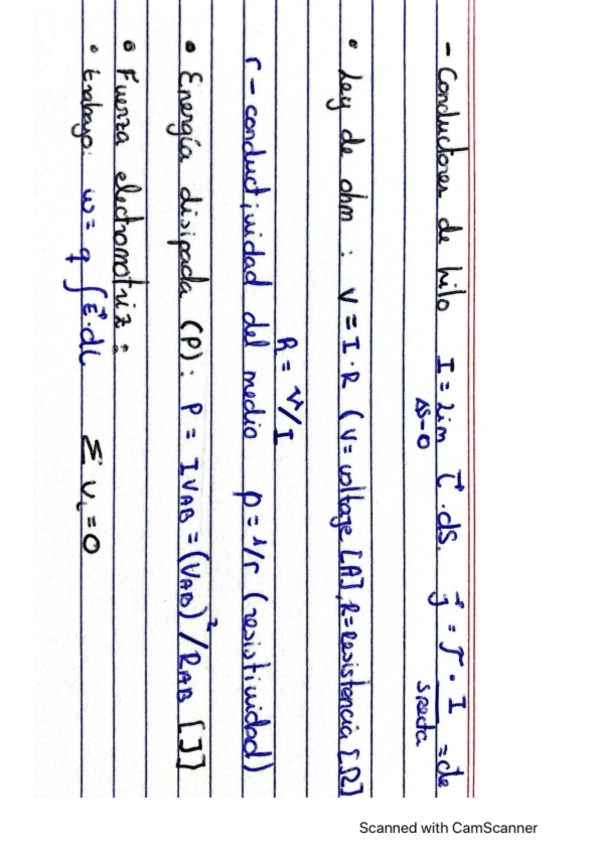 - Conductores de hilo I = Lim τ⃗ . dS. j⃗ = τ⃗ . I = de
ΔS→0 Srecta
• Ley de ohm : V = I · R (V = voltage [A], R = resistencia [Ω]
R = V/I
r - conductividad del medio ρ = 1/r (resistividad)
• Energía disipada (P): P = I VAB = (VAB)² / RAB [J]
• Fuerza electromotriz :
• trabajo: w = q ∫ E⃗ · dl Σ Vi = 0
Scanned with CamScanner